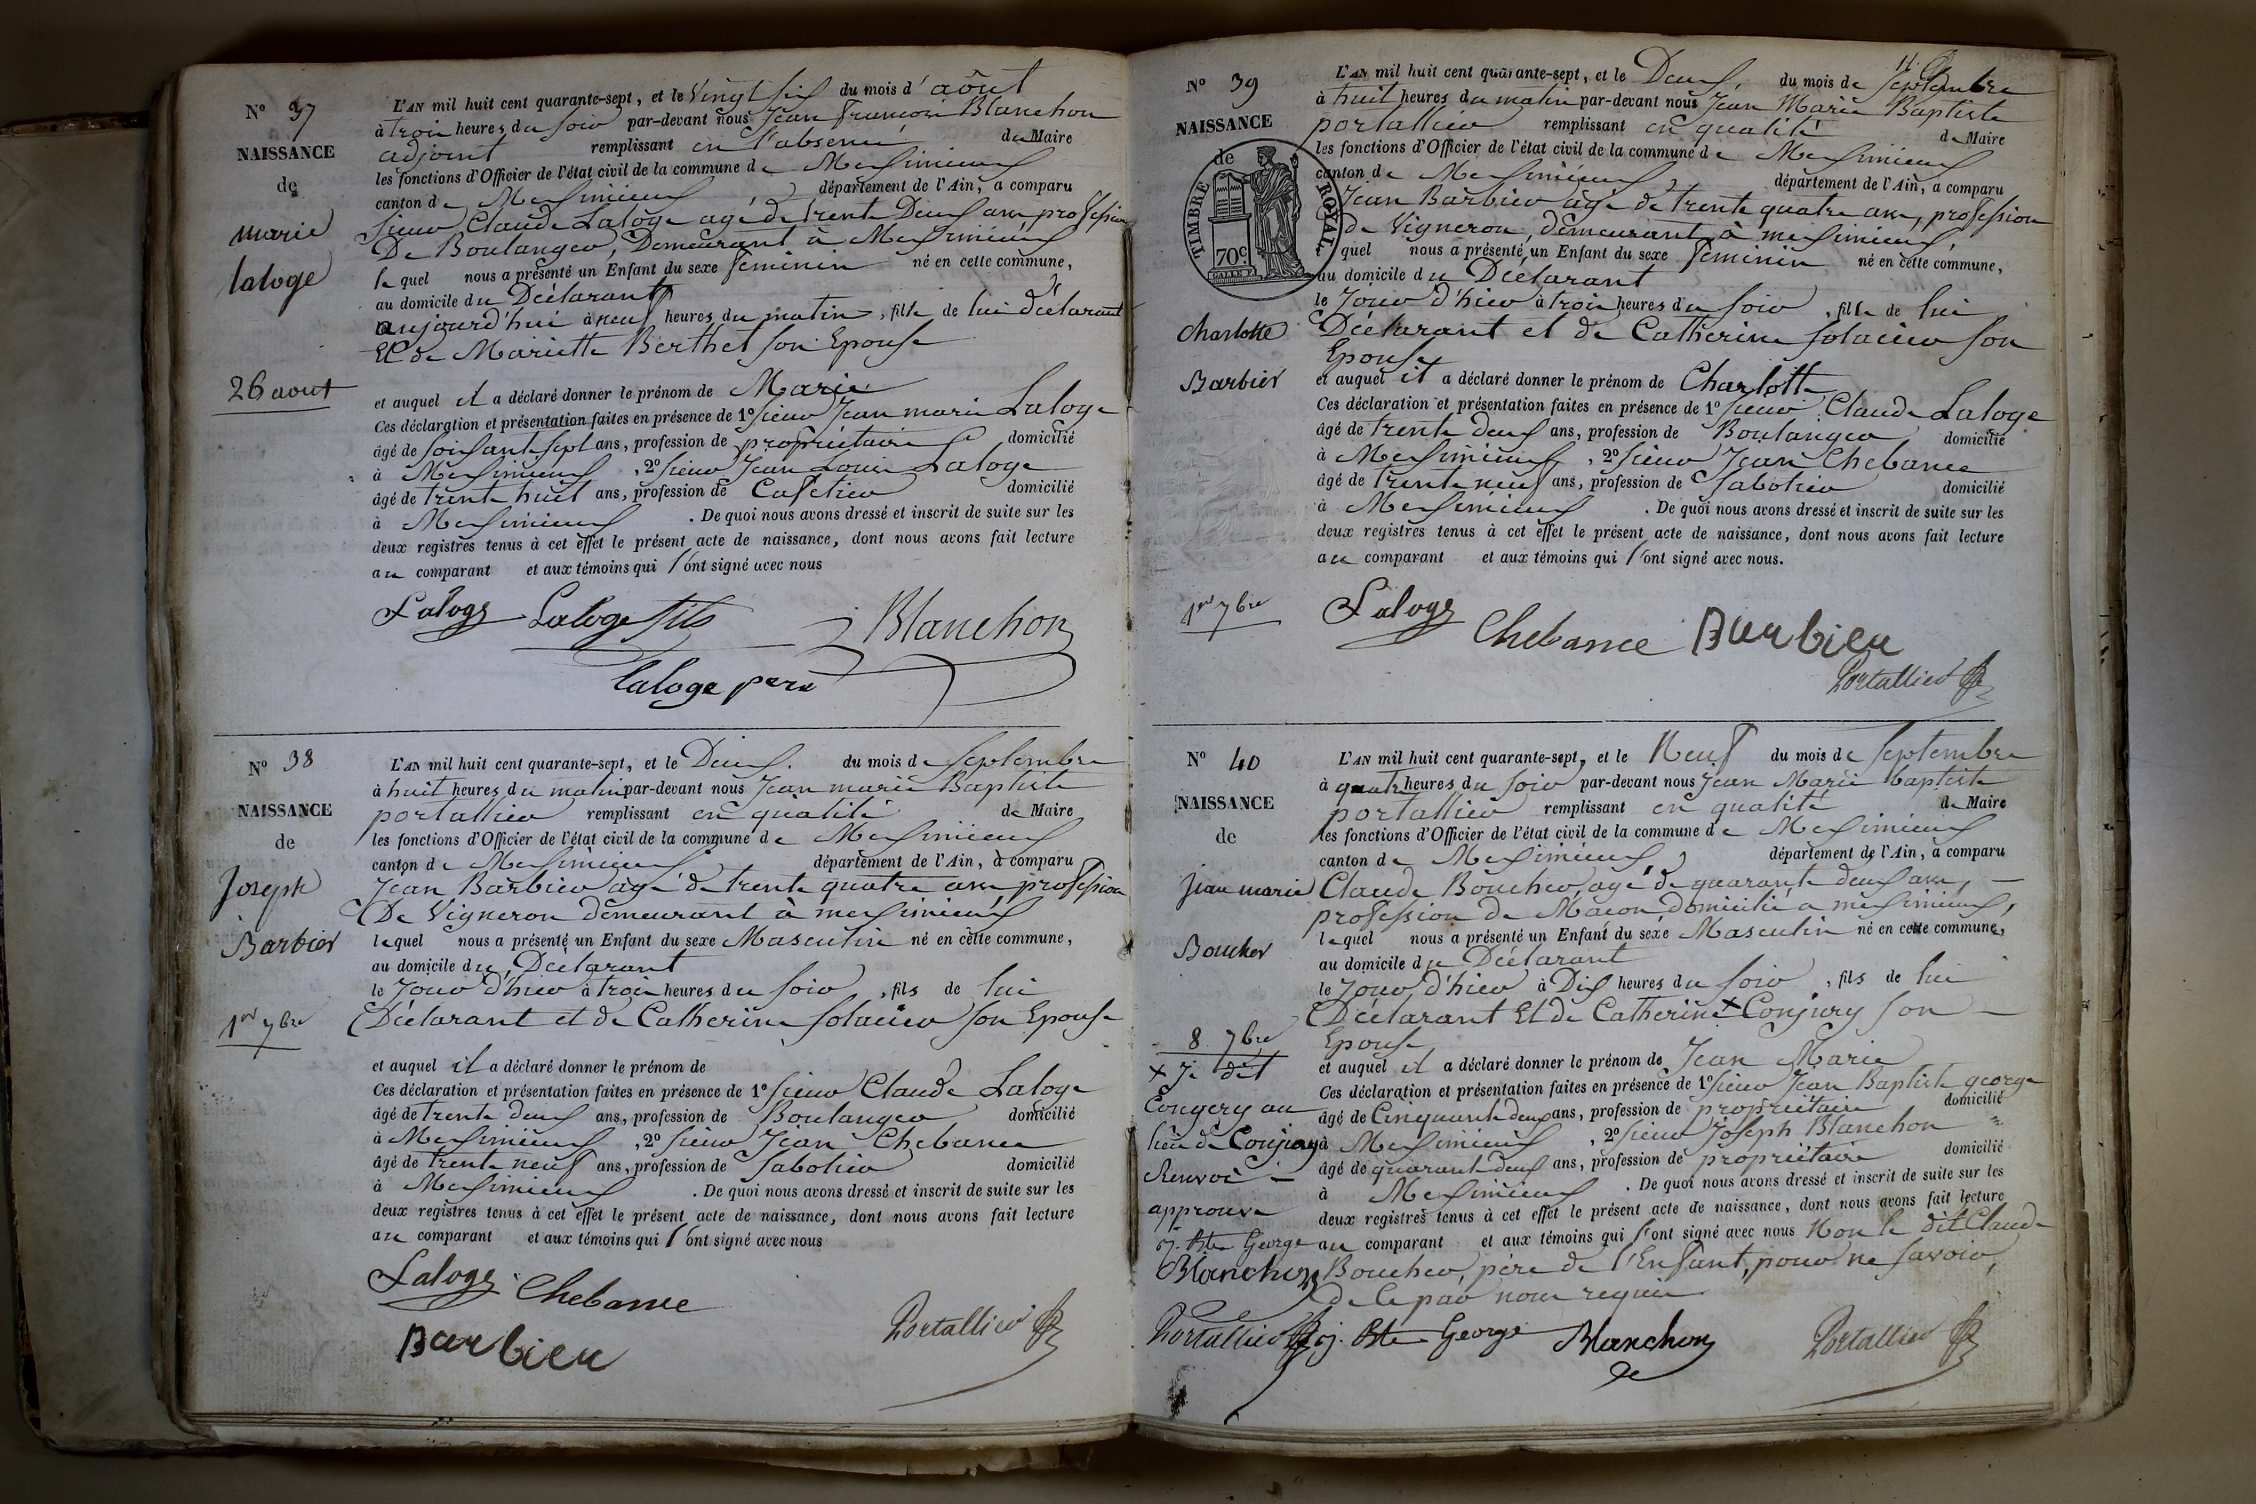 N° 37
NAISSANCE
de
marie
laloge
26 aout
L'AN mil huit cent quarante-sept, et le Vingt six du mois d'août
à trois heures du soir par-devant nous Jean Francois Blanchon
adjoint remplissant en l'absence du Maire
les fonctions d'Officier de l'état civil de la commune de Meximieux
canton de Meximieux département de l'Ain, a comparu
sieur Claude Laloge agé de trente Deux ans profession
De Boulanger, Demeurant à Meximieux
lequel nous a présenté un Enfant du sexe feminin né en cette commune,
au domicile du Déclarant
aujourd'hui à neuf heures du matin, fille de lui déclarant
Et de Mariette Berthet son Epouse
et auquel il a déclaré donner le prénom de Marie
Ces déclaration et présentation faites en présence de 1° sieur Jean marie Laloge
âgé de soixante sept ans, profession de propriétaire domicilié
à Meximieux, 2° sieur Jean Louis Laloge
âgé de trente huit ans, profession de Cafetier domicilié
à Meximieux. De quoi nous avons dressé et inscrit de suite sur les
deux registres tenus à cet effet le présent acte de naissance, dont nous avons fait lecture
au comparant et aux témoins qui l'ont signé avec nous
Laloge Laloge fils Blanchon
laloge pere
N° 38
NAISSANCE
de
Joseph
Barbier
1er 7bre
L'AN mil huit cent quarante-sept, et le Deux du mois de Septembre
à huit heures du matin par-devant nous Jean marie Baptiste
portallier remplissant en qualité de Maire
les fonctions d'Officier de l'état civil de la commune de Meximieux
canton de Meximieux département de l'Ain, a comparu
Jean Barbier agé de trente quatre ans profession
De Vigneron demeurant à meximieux
lequel nous a présenté un Enfant du sexe Masculin né en cette commune,
au domicile du Déclarant
le Jour d'hier à trois heures du soir, fils de lui
Déclarant et de Catherine solacier son Epouse
et auquel il a déclaré donner le prénom de
Ces déclaration et présentation faites en présence de 1° sieur Claude Laloge
âgé de trente deux ans, profession de Boulanger domicilié
à Meximieux, 2° sieur Jean Chebance
âgé de trente neuf ans, profession de Sabotier domicilié
à Meximieux. De quoi nous avons dressé et inscrit de suite sur les
deux registres tenus à cet effet le présent acte de naissance, dont nous avons fait lecture
au comparant et aux témoins qui l'ont signé avec nous
Laloge Chebance
Barbier Portallier
N° 39
NAISSANCE
de
TIMBRE ROYAL
70c
Charlotte
Barbier
1er 7bre
L'AN mil huit cent quarante-sept, et le Deux du mois de Septembre
à huit heures du matin par-devant nous Jean Marie Baptiste
portallier remplissant en qualité de Maire
les fonctions d'Officier de l'état civil de la commune de Meximieux
canton de Meximieux, département de l'Ain, a comparu
Jean Barbier âgé de trente quatre ans, profession
de Vigneron, demeurant à meximieux,
quel nous a présenté un Enfant du sexe feminin né en cette commune,
au domicile du Déclarant
le Jour d'hier à trois heures du soir, fille de lui
Déclarant et de Catherine solacier son
Epouse
et auquel il a déclaré donner le prénom de Charlotte
Ces déclaration et présentation faites en présence de 1° sieur Claude Laloge
âgé de trente deux ans, profession de Boulanger domicilié
à Meximieux, 2° sieur Jean Chebance
âgé de trente neuf ans, profession de Sabotier domicilié
à Meximieux. De quoi nous avons dressé et inscrit de suite sur les
deux registres tenus à cet effet le présent acte de naissance, dont nous avons fait lecture
au comparant et aux témoins qui l'ont signé avec nous.
Laloge Chebance Barbier
Portallier
N° 40
NAISSANCE
de
jean marie
Boucher
8 7bre
x Je dit
Congery au
lieu de Conjury
Renvoi
approuvé
j. Bte George
Blanchon
Portallier
L'AN mil huit cent quarante-sept, et le Neuf du mois de Septembre
à quatre heures du soir par-devant nous Jean Marie baptiste
portallier remplissant en qualité de Maire
les fonctions d'Officier de l'état civil de la commune de Meximieux
canton de Meximieux, département de l'Ain, a comparu
Claude Boucher, agé de quarante deux ans,
profession de Macon domicilié a meximieux,
lequel nous a présenté un Enfant du sexe Masculin né en cette commune,
au domicile du Déclarant
le Jour d'hier à Dix heures du soir, fils de lui
Déclarant Et de Catherine x Conjury son
Epouse
et auquel il a déclaré donner le prénom de Jean Marie
Ces déclaration et présentation faites en présence de 1° sieur Jean Baptiste george
âgé de Cinquante deux ans, profession de propriétaire domicilié
à Meximieux, 2° sieur Joseph Blanchon
âgé de quarante deux ans, profession de propriétaire domicilié
à Meximieux. De quoi nous avons dressé et inscrit de suite sur les
deux registres tenus à cet effet le présent acte de naissance, dont nous avons fait lecture
au comparant et aux témoins qui l'ont signé avec nous Non le dit Claude
Boucher, père de l'Enfant, pour ne savoir,
de ce par nous requis
j. Bte George Blanchon Portallier